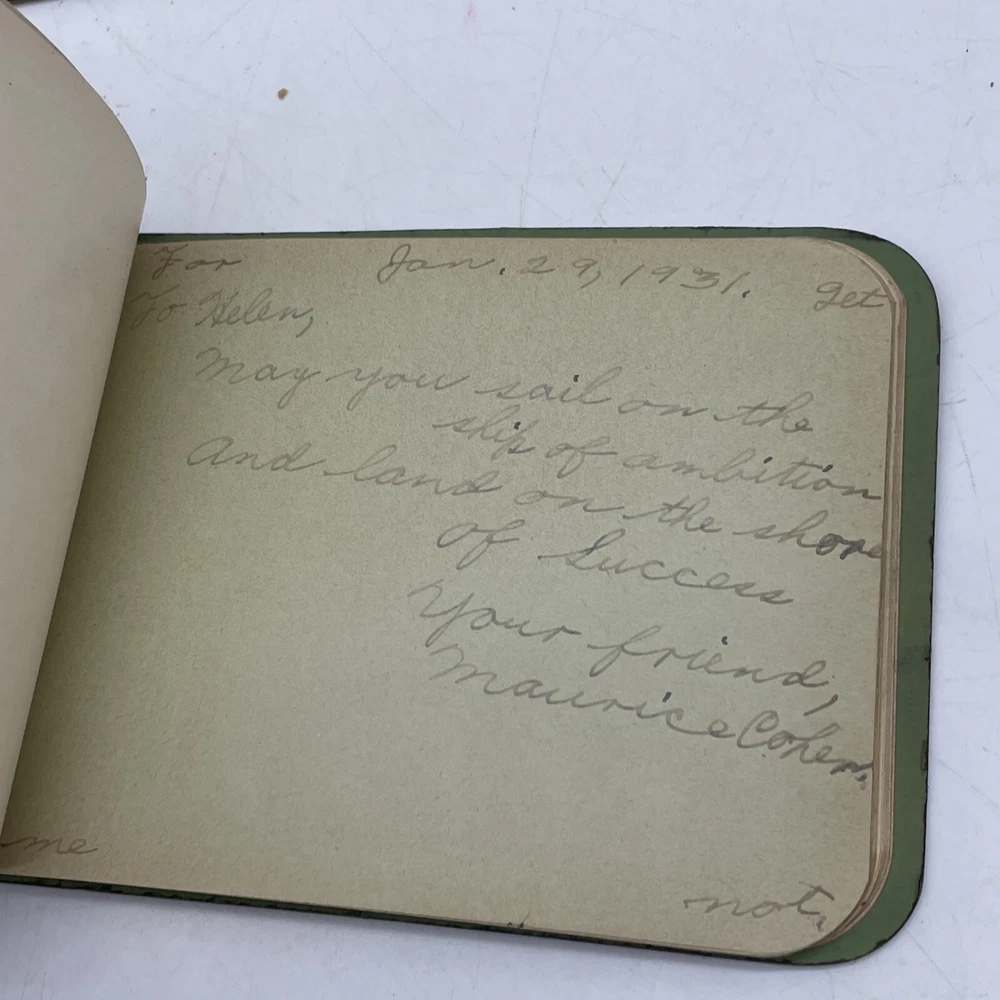 For Jan. 29, 1931. get
To Helen,
May you sail on the
ship of ambition
And land on the shore
of Success
Your friend,
Maurice Cohen.
me not.